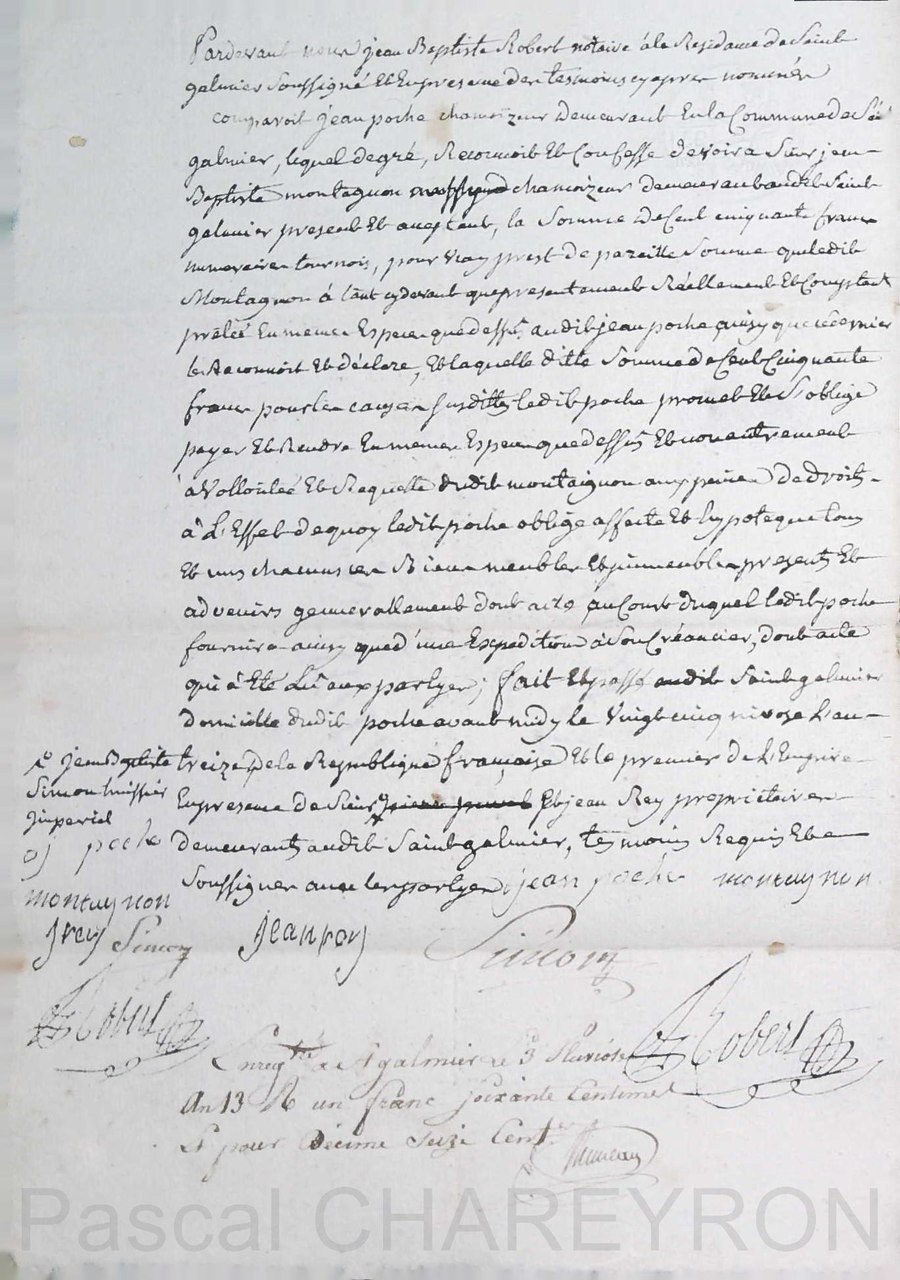 Pardevant nous jean Baptiste Robert notaire à la Residance de Saint
galmier Soussigné Et En presence des temoins cy apres nommés
comparoit jean poche chamoizeur Demeurant En la Commune de St
galmier, lequel degré, Reconnoit Et Confesse devoir a Sieur jean
Baptiste montagnon chamoizeur demeurant audit Saint
galmier present Et aceptant, la Somme de Cent cinquante francs
numeraire tournois, pour vray prest de pareille Somme que ledit
Montagnon à tant cy devant que presentement Réellement Et Comptant
prêtés En meme Espece que dessus, audit jean poche ainsy que ce dernier
le Reconnoit Et déclare, Et laquelle ditte Somme de Cent Cinquante
francs pour les causes susdittes ledit poche promet Et S'oblige
payer Et Rendre En meme Espece que dessus Et non autrement
à Vollontée Et Requette dudit montaignon aux peines de droits
à L'Effet de quoy ledit poche oblige affecte Et hypoteque tous
Et uns chacuns ses Biens meubles Et jmmeubles presents Et
advenirs generrallement dont acte au Cout duquel ledit poche
fournira ainsy que d'une Expedition à Son Créancier, dont acte
qui à Eté Lu aux partyes; fait Et passé audit Saint galmier
domicille dudit poche avant midy le Vingt cinq nivose L'an
treize de la Republique française Et le premier de L'Empire
En presence de Sieur x Et jean Rey proprietaires
demeurants audit Saint galmier, temoins Requis Et
Soussignés avec les partyes jean poche montaynon
x jean Baptiste
Simon huissier
jmperial
j poche
montaynon
jrey Simon jean rey Simon
Robert Robert
Enregtré a St galmier le 3 Pluviose
An 13 R un franc soixante Centimes
Et pour Décime seize Cent.